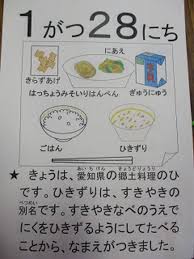 1がつ28にち
きらずあげ
にあえ
ぎゅうにゅう
はっちょうみそいりはんぺん
ごはん
ひきずり
★ きょうは、愛知県の郷土料理のひ
です。ひきずりは、すきやきの
別名です。すきやきなべのうえで
にくをひきずるようにしてたべる
ことから、なまえがつきました。